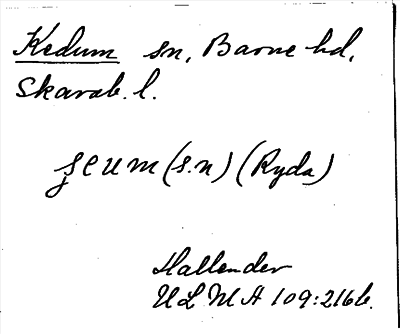 Kedum sn, Barne hd,
Skarab. l.
ɟeum (s.n) (Ryda)
Hallender
ULMA 109:216b.